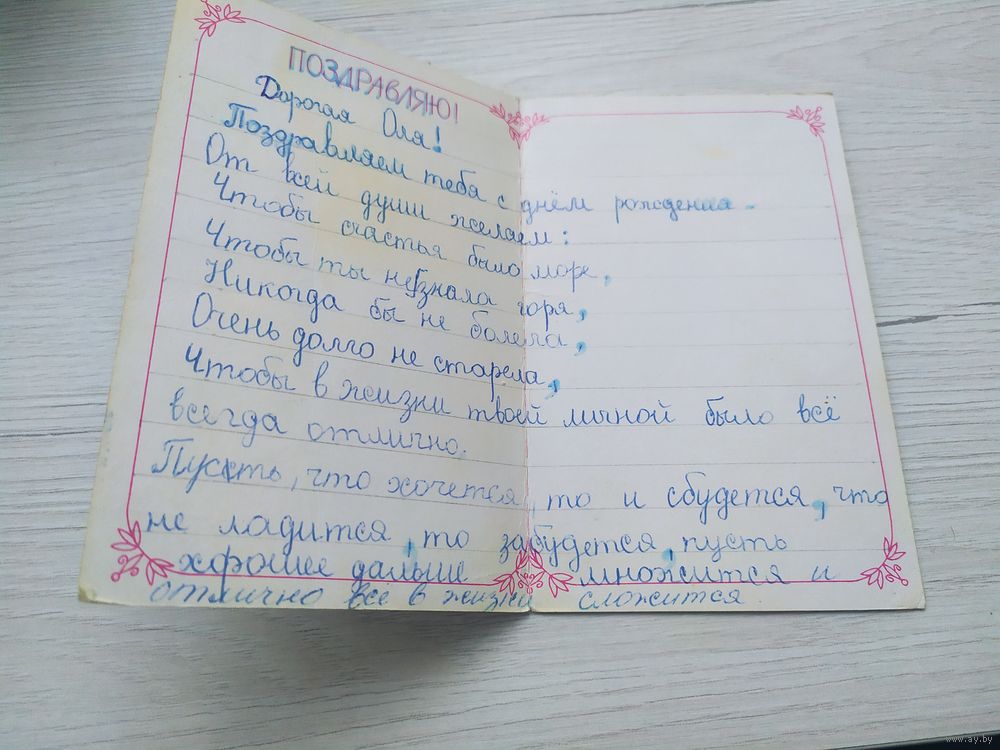 ПОЗДРАВЛЯЮ!
Дорогая Оля!
Поздравляем тебя с днём рождения.
От всей души желаем:
Чтобы счастья было море,
Чтобы ты не знала горя,
Никогда бы не болела,
Очень долго не старела,
Чтобы в жизни твоей личной было всё
всегда отлично.
Пусть, что хочется, то и сбудется, что
не ладится, то забудется, пусть
хорошее дальше множится и
отлично все в жизни сложится
www.ay.by